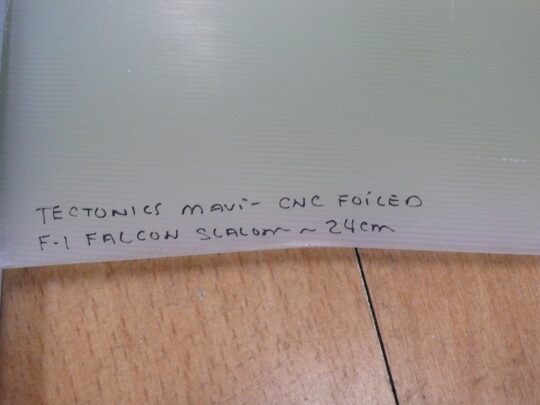 TECTONICS MAUi- CNC FOiLED
F-1 FALCON SLALOM ~ 24cm